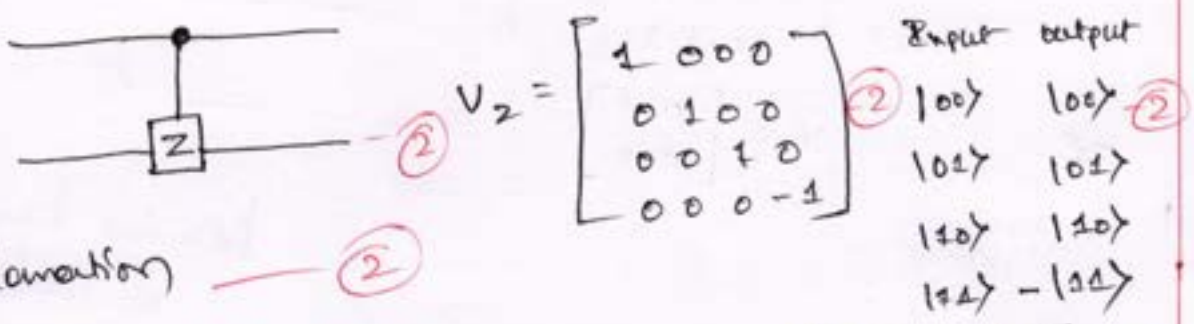 Z
②
V₂ = [ 1 0 0 0
0 1 0 0
0 0 1 0
0 0 0 -1 ] ②
Input output
|00⟩ |00⟩ - ②
|01⟩ |01⟩
|10⟩ |10⟩
|11⟩ - |11⟩
anation — ②